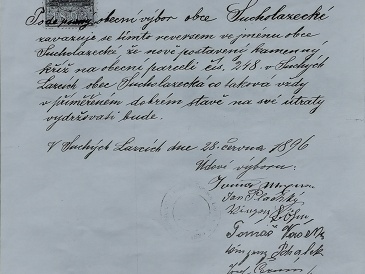 Podepsaný obecní výbor obce Sucholazecké
zavazuje se tímto reversem ve jménu obce
Sucholazecké že nově postavený kamenný
kříž na obecní parceli čís. 248. v Suchých
Lazcích obec Sucholazecká co takový vždy
v přiměřeném dobrém stavě na své útraty
vydržovati bude.
V Suchých Lazcích dne 28. června 1896
Údové výboru:
Tomáš
Jan
Böhm
Tomáš